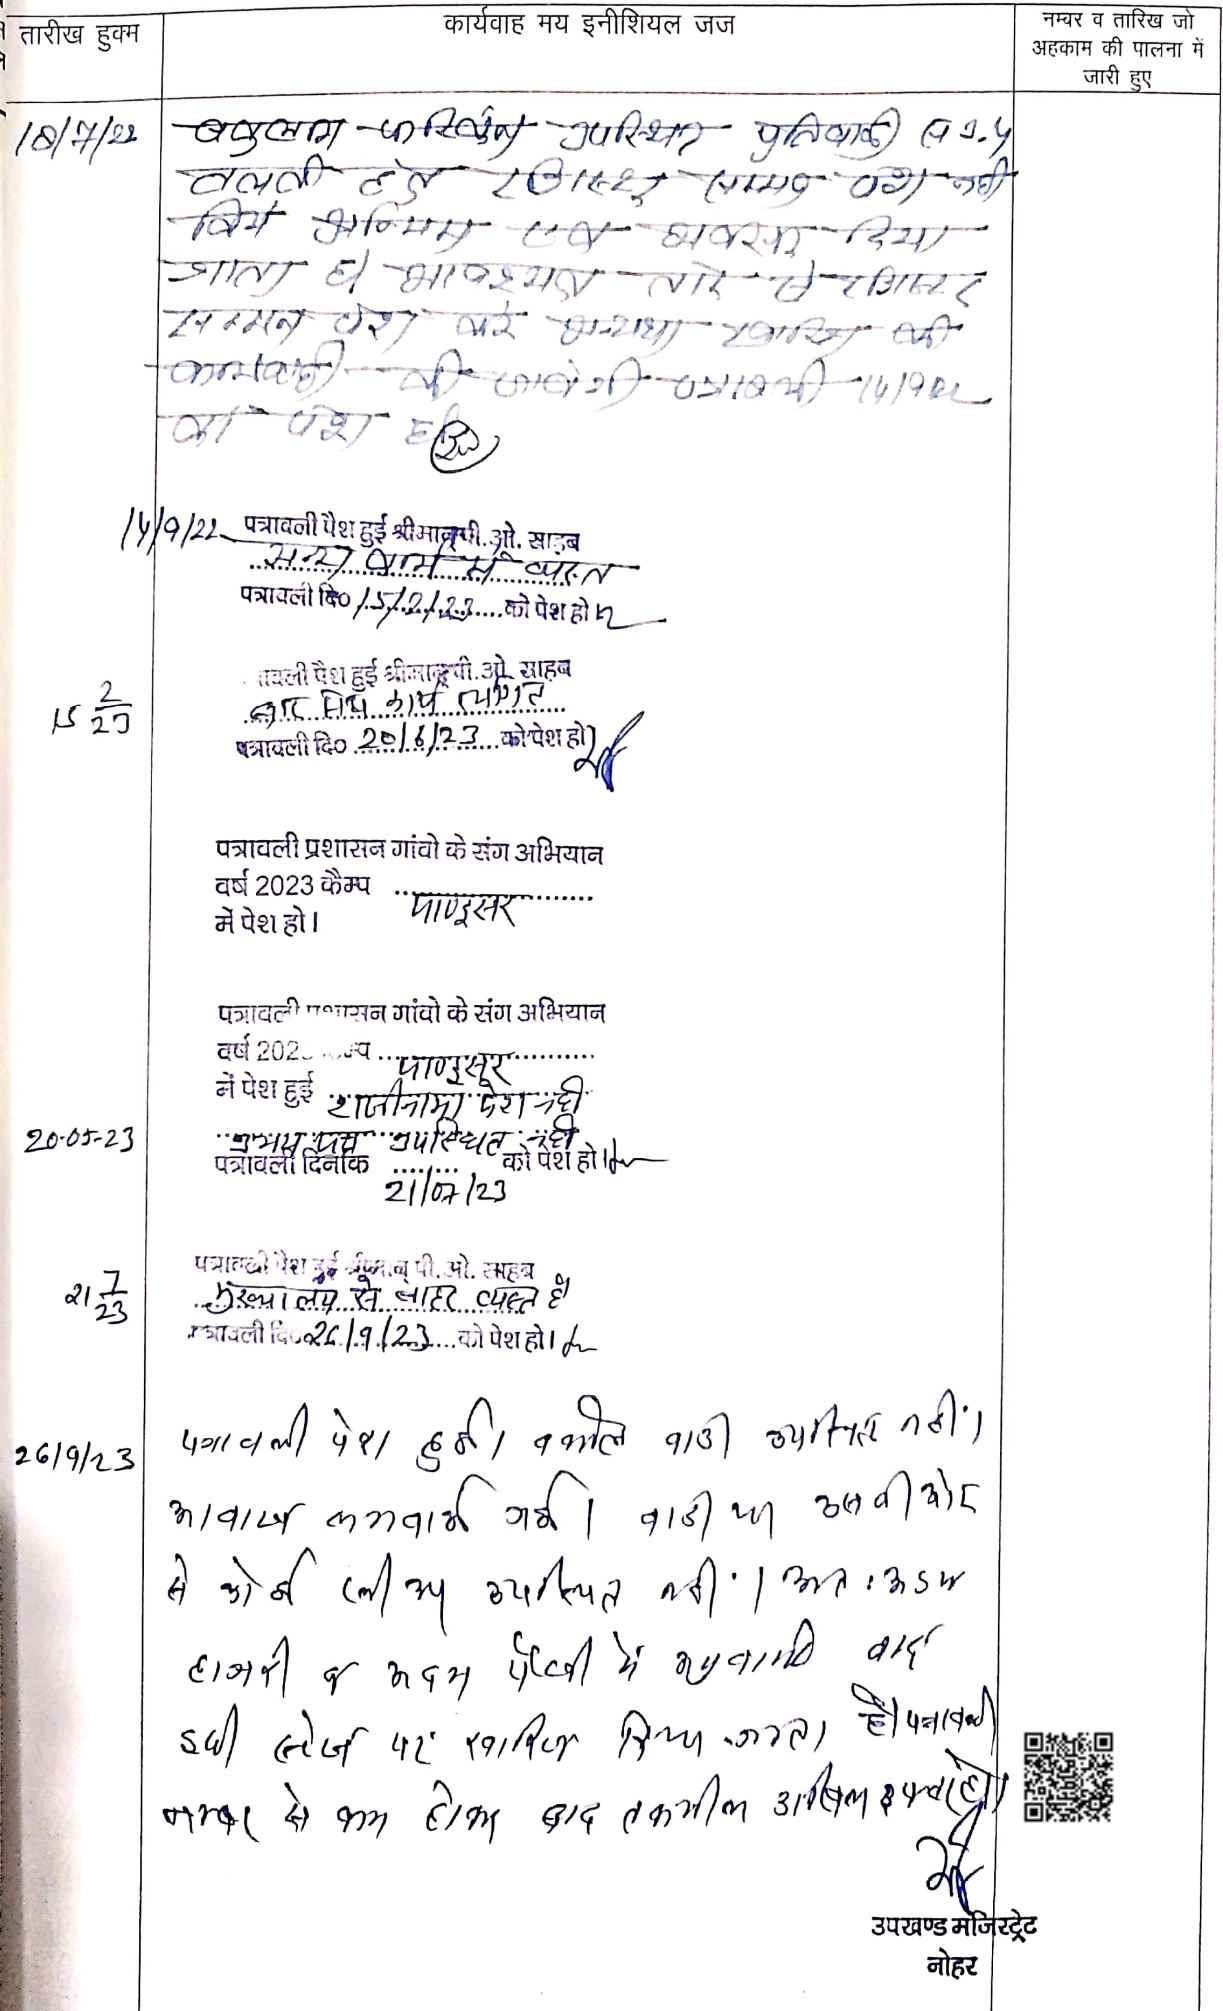 तारीख हुक्म
कार्यवाह मय इनीशियल जज
नम्बर व तारिख जो
अहकाम की पालना में
जारी हुए
18/7/22
उपस्थित प्रतिवादी
तलबी हेतु रजिस्टर्ड सम्मन पेश नहीं
किये अन्तिम एक अवसर दिया
जाता है आवश्यक तौर से रजिस्टर्ड
सम्मन पेश करे अन्यथा खारिज की
कार्यवाही की जावेगी पत्रावली 14/9/22
को पेश हो
14/9/22 पत्रावली पैश हुई श्रीमान् पी.ओ. साहब
अन्य कार्य में व्यस्त
पत्रावली दि० 15/2/23 को पेश हो
15 2/23
पत्रावली पैश हुई श्रीमान् पी.ओ. साहब
कार्य स्थगित
पत्रावली दि० 20/6/23 को पेश हो
पत्रावली प्रशासन गांवो के संग अभियान
वर्ष 2023 कैम्प पाण्डुसर
में पेश हो।
पत्रावली प्रशासन गांवो के संग अभियान
वर्ष 202 पाण्डुसर
में पेश हुई राजीनामा पेश नहीं
20-05-23
उभय पक्ष उपस्थित नहीं
पत्रावली दिनांक को पेश हो।
21/07/23
पत्रावली पेश हुई श्रीमान् पी.ओ. साहब
21 7/23
मुख्यालय से बाहर व्यस्त है
पत्रावली दि० 26/9/23 को पेश हो।
26/9/23
पत्रावली पेश हुई। वकील वादी उपस्थित नहीं।
आवाज लगवाई गई। वादी या उसकी ओर
से कोई भी उपस्थित नहीं। अतः अदम
हाजरी व अदम पैरवी में वाद
इसी स्टेज पर खारिज किया जाता है। पत्रावली
नम्बर से कम होकर बाद तकमील दाखिल दफ्तर हो।
उपखण्ड मजिस्ट्रेट
नोहर